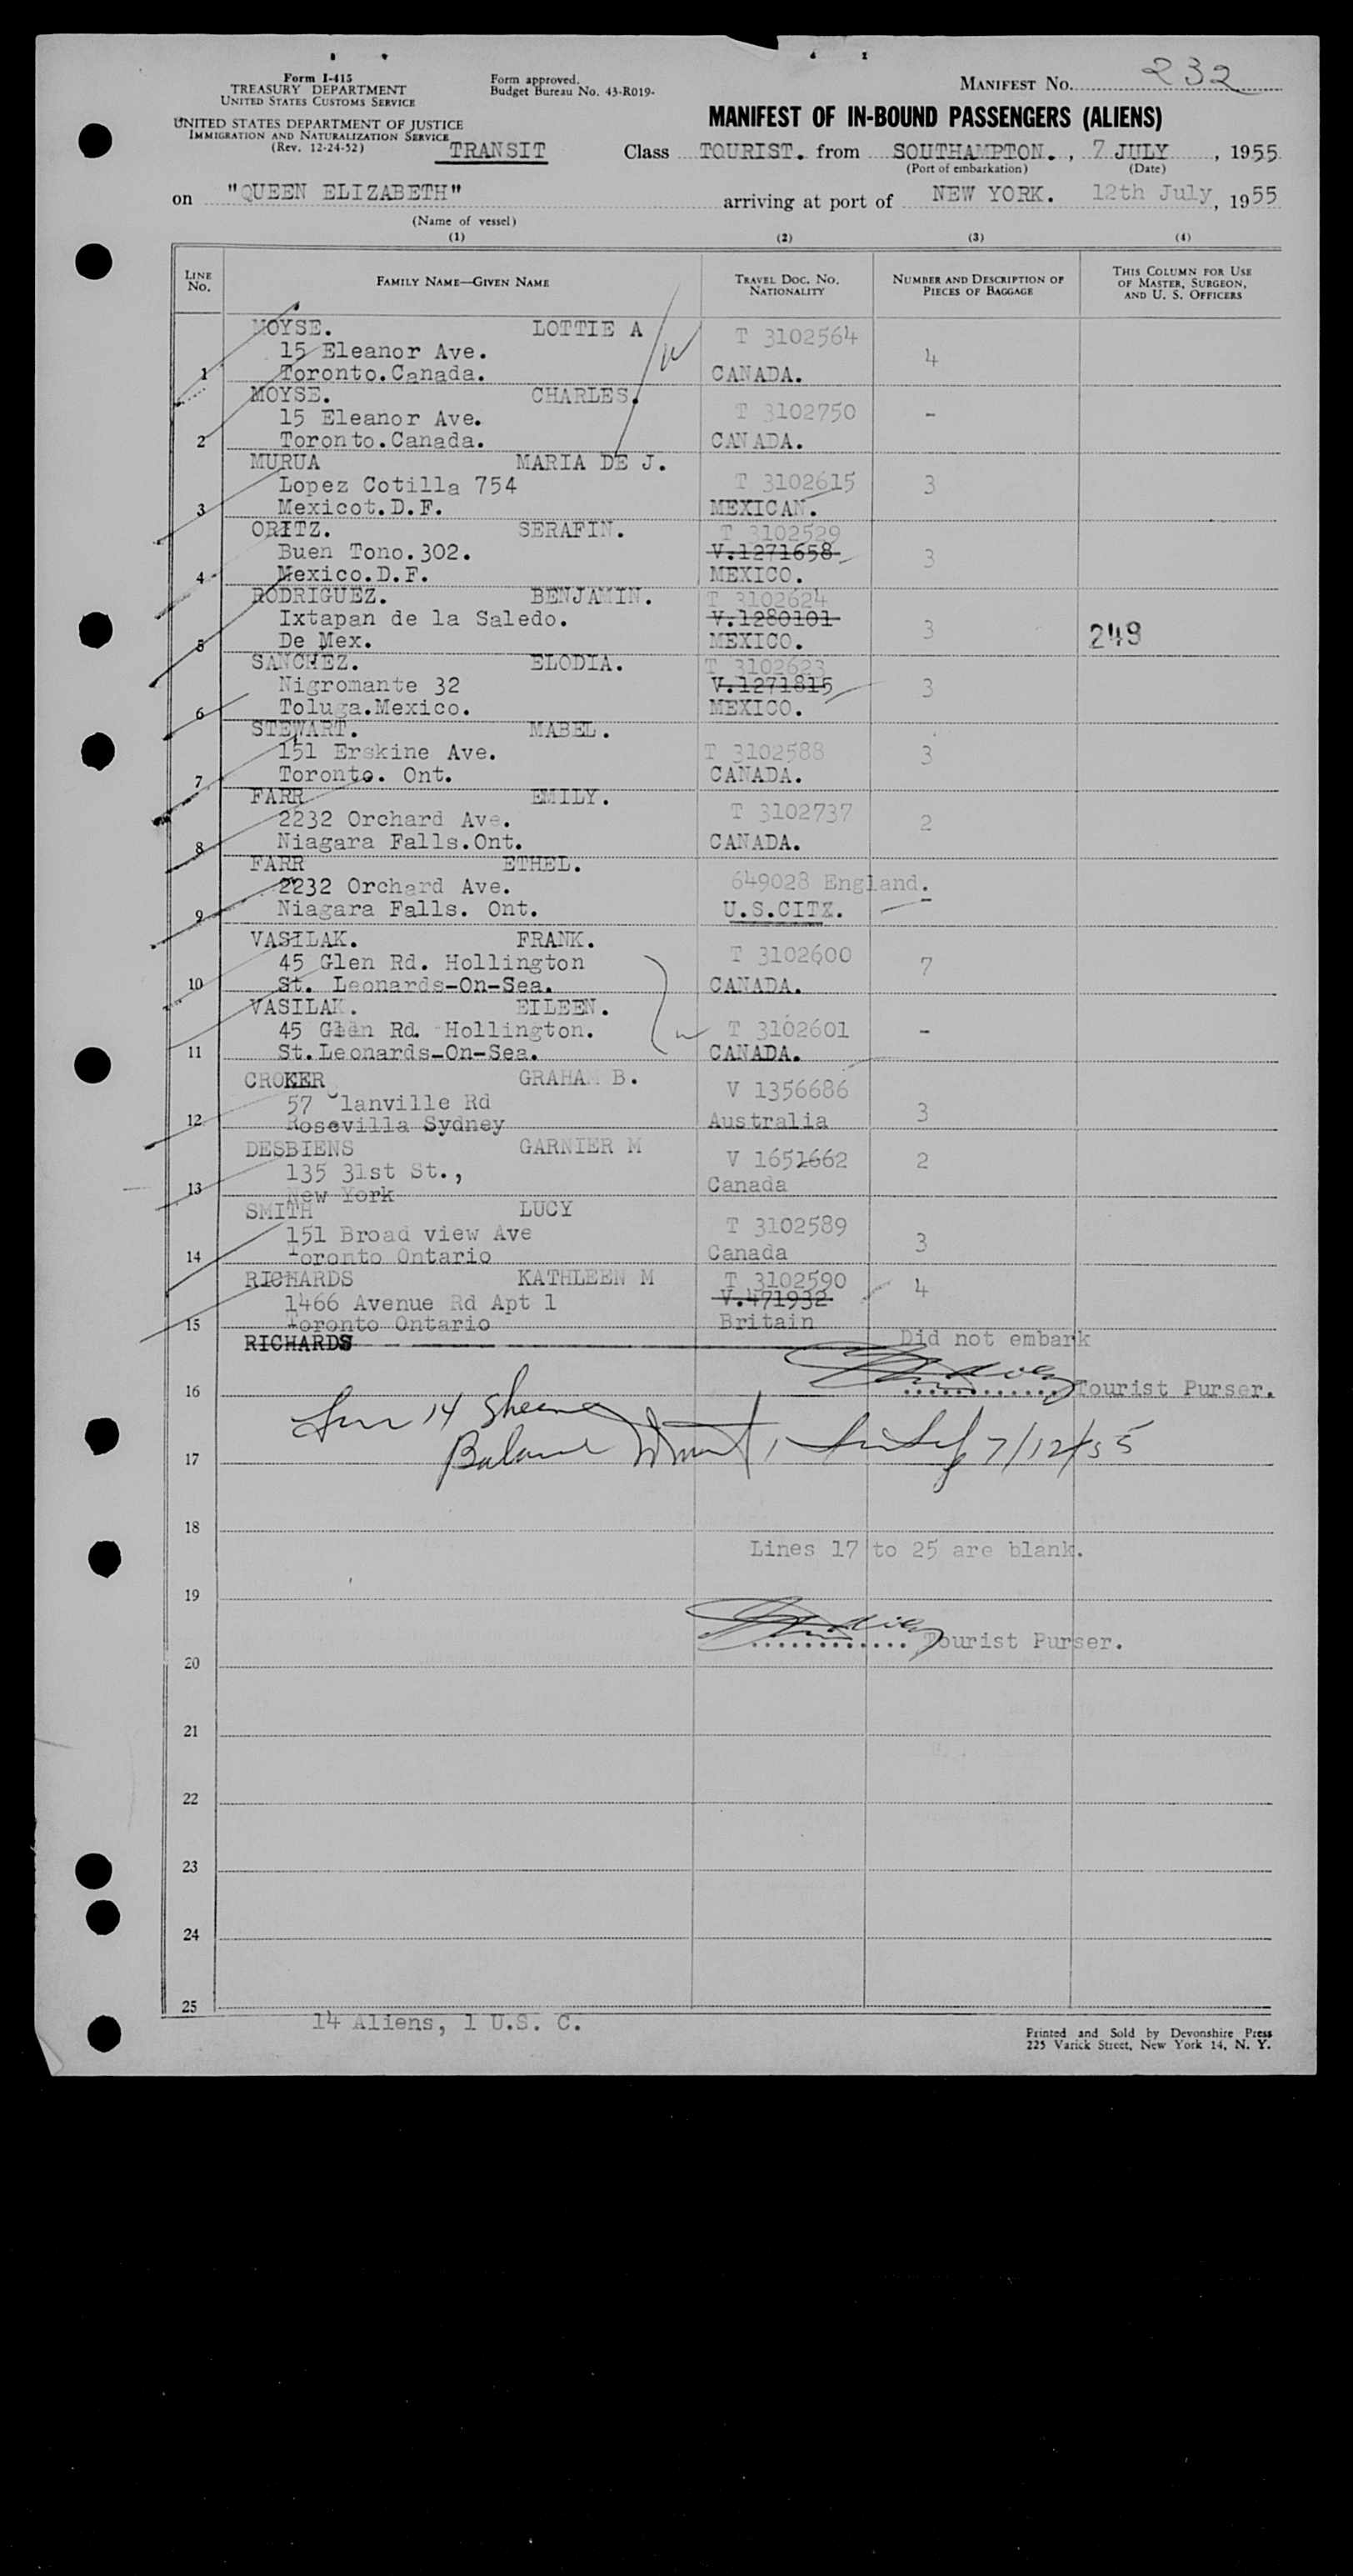 Form I-415
TREASURY DEPARTMENT
UNITED STATES CUSTOMS SERVICE
Form approved.
Budget Bureau No. 43-R019-
MANIFEST No. 232
UNITED STATES DEPARTMENT OF JUSTICE
IMMIGRATION AND NATURALIZATION SERVICE
(Rev. 12-24-52)
TRANSIT
MANIFEST OF IN-BOUND PASSENGERS (ALIENS)
Class TOURIST. from SOUTHAMPTON., 7 JULY, 1955
(Port of embarkation) (Date)
on "QUEEN ELIZABETH" arriving at port of NEW YORK. 12th July, 1955
(Name of vessel)
(1) (2) (3) (4)
LINE No. FAMILY NAME—GIVEN NAME TRAVEL DOC. NO. NATIONALITY NUMBER AND DESCRIPTION OF PIECES OF BAGGAGE THIS COLUMN FOR USE OF MASTER, SURGEON, AND U. S. OFFICERS
MOYSE. LOTTIE A T 3102564
15 Eleanor Ave. 4
1 Toronto.Canada. CANADA.
MOYSE. CHARLES.
15 Eleanor Ave. T 3102750 -
2 Toronto.Canada. CANADA.
MURUA MARIA DE J.
Lopez Cotilla 754 T 3102615 3
3 Mexicot.D.F. MEXICAN.
ORITZ. SERAFIN. T 3102529
Buen Tono.302. V.1271658 3
4 Mexico.D.F. MEXICO.
RODRIGUEZ. BENJAMIN. T 3102624
Ixtapan de la Saledo. V.1280101 3
5 De Mex. MEXICO. 249
SANCHEZ. ELODIA. T 3102623
Nigromante 32 V.1271815 3
6 Toluga.Mexico. MEXICO.
STEWART. MABEL.
151 Erskine Ave. T 3102588 3
7 Toronto. Ont. CANADA.
FARR EMILY.
2232 Orchard Ave. T 3102737 2
8 Niagara Falls.Ont. CANADA.
FARR ETHEL.
2232 Orchard Ave. 649028 England. -
9 Niagara Falls. Ont. U.S.CITZ.
VASILAK. FRANK.
45 Glen Rd. Hollington T 3102600 7
10 St. Leonards-On-Sea. CANADA.
VASILAK. EILEEN.
45 Glen Rd. Hollington. T 3102601 -
11 St.Leonards-On-Sea. CANADA.
CROKER GRAHAM B. V 1356686
57 Clanville Rd 3
12 Rosevilla Sydney Australia
DESBIENS GARNIER M V 1651662 2
135 31st St.,
13 New York Canada
SMITH LUCY
151 Broad view Ave T 3102589 3
14 Toronto Ontario Canada
RICHARDS KATHLEEN M T 3102590 4
1466 Avenue Rd Apt 1 V.471932
15 Toronto Ontario Britain
RICHARDS Did not embark
16 Tourist Purser.
17 7/12/55
18
Lines 17 to 25 are blank.
19
Tourist Purser.
20
21
22
23
24
25
14 Aliens, 1 U.S. C.
Printed and Sold by Devonshire Press
225 Varick Street, New York 14, N. Y.